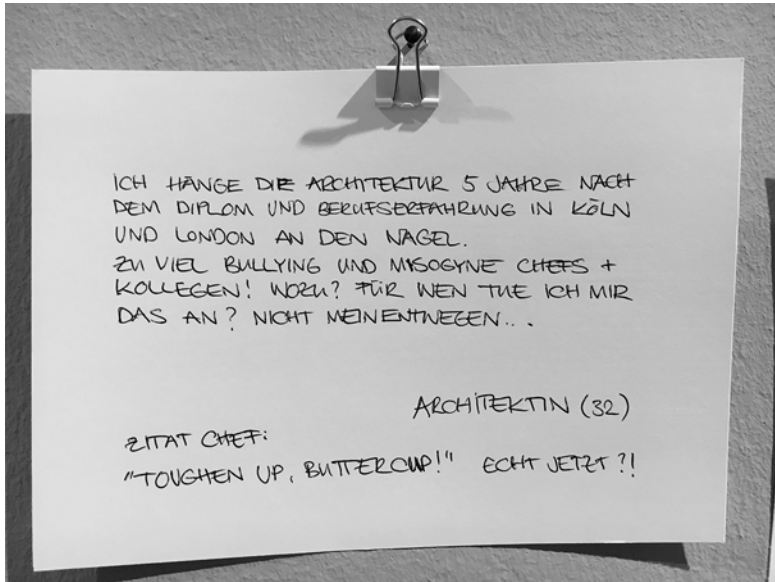 ICH HÄNGE DIE ARCHITEKTUR 5 JAHRE NACH
DEM DIPLOM UND BERUFSERFAHRUNG IN KÖLN
UND LONDON AN DEN NAGEL.
ZU VIEL BULLYING UND MISOGYNE CHEFS +
KOLLEGEN! WOZU? FÜR WEN TUE ICH MIR
DAS AN? NICHT MEINENTWEGEN...
ARCHITEKTIN (32)
ZITAT CHEF:
"TOUGHEN UP, BUTTERCUP!" ECHT JETZT?!